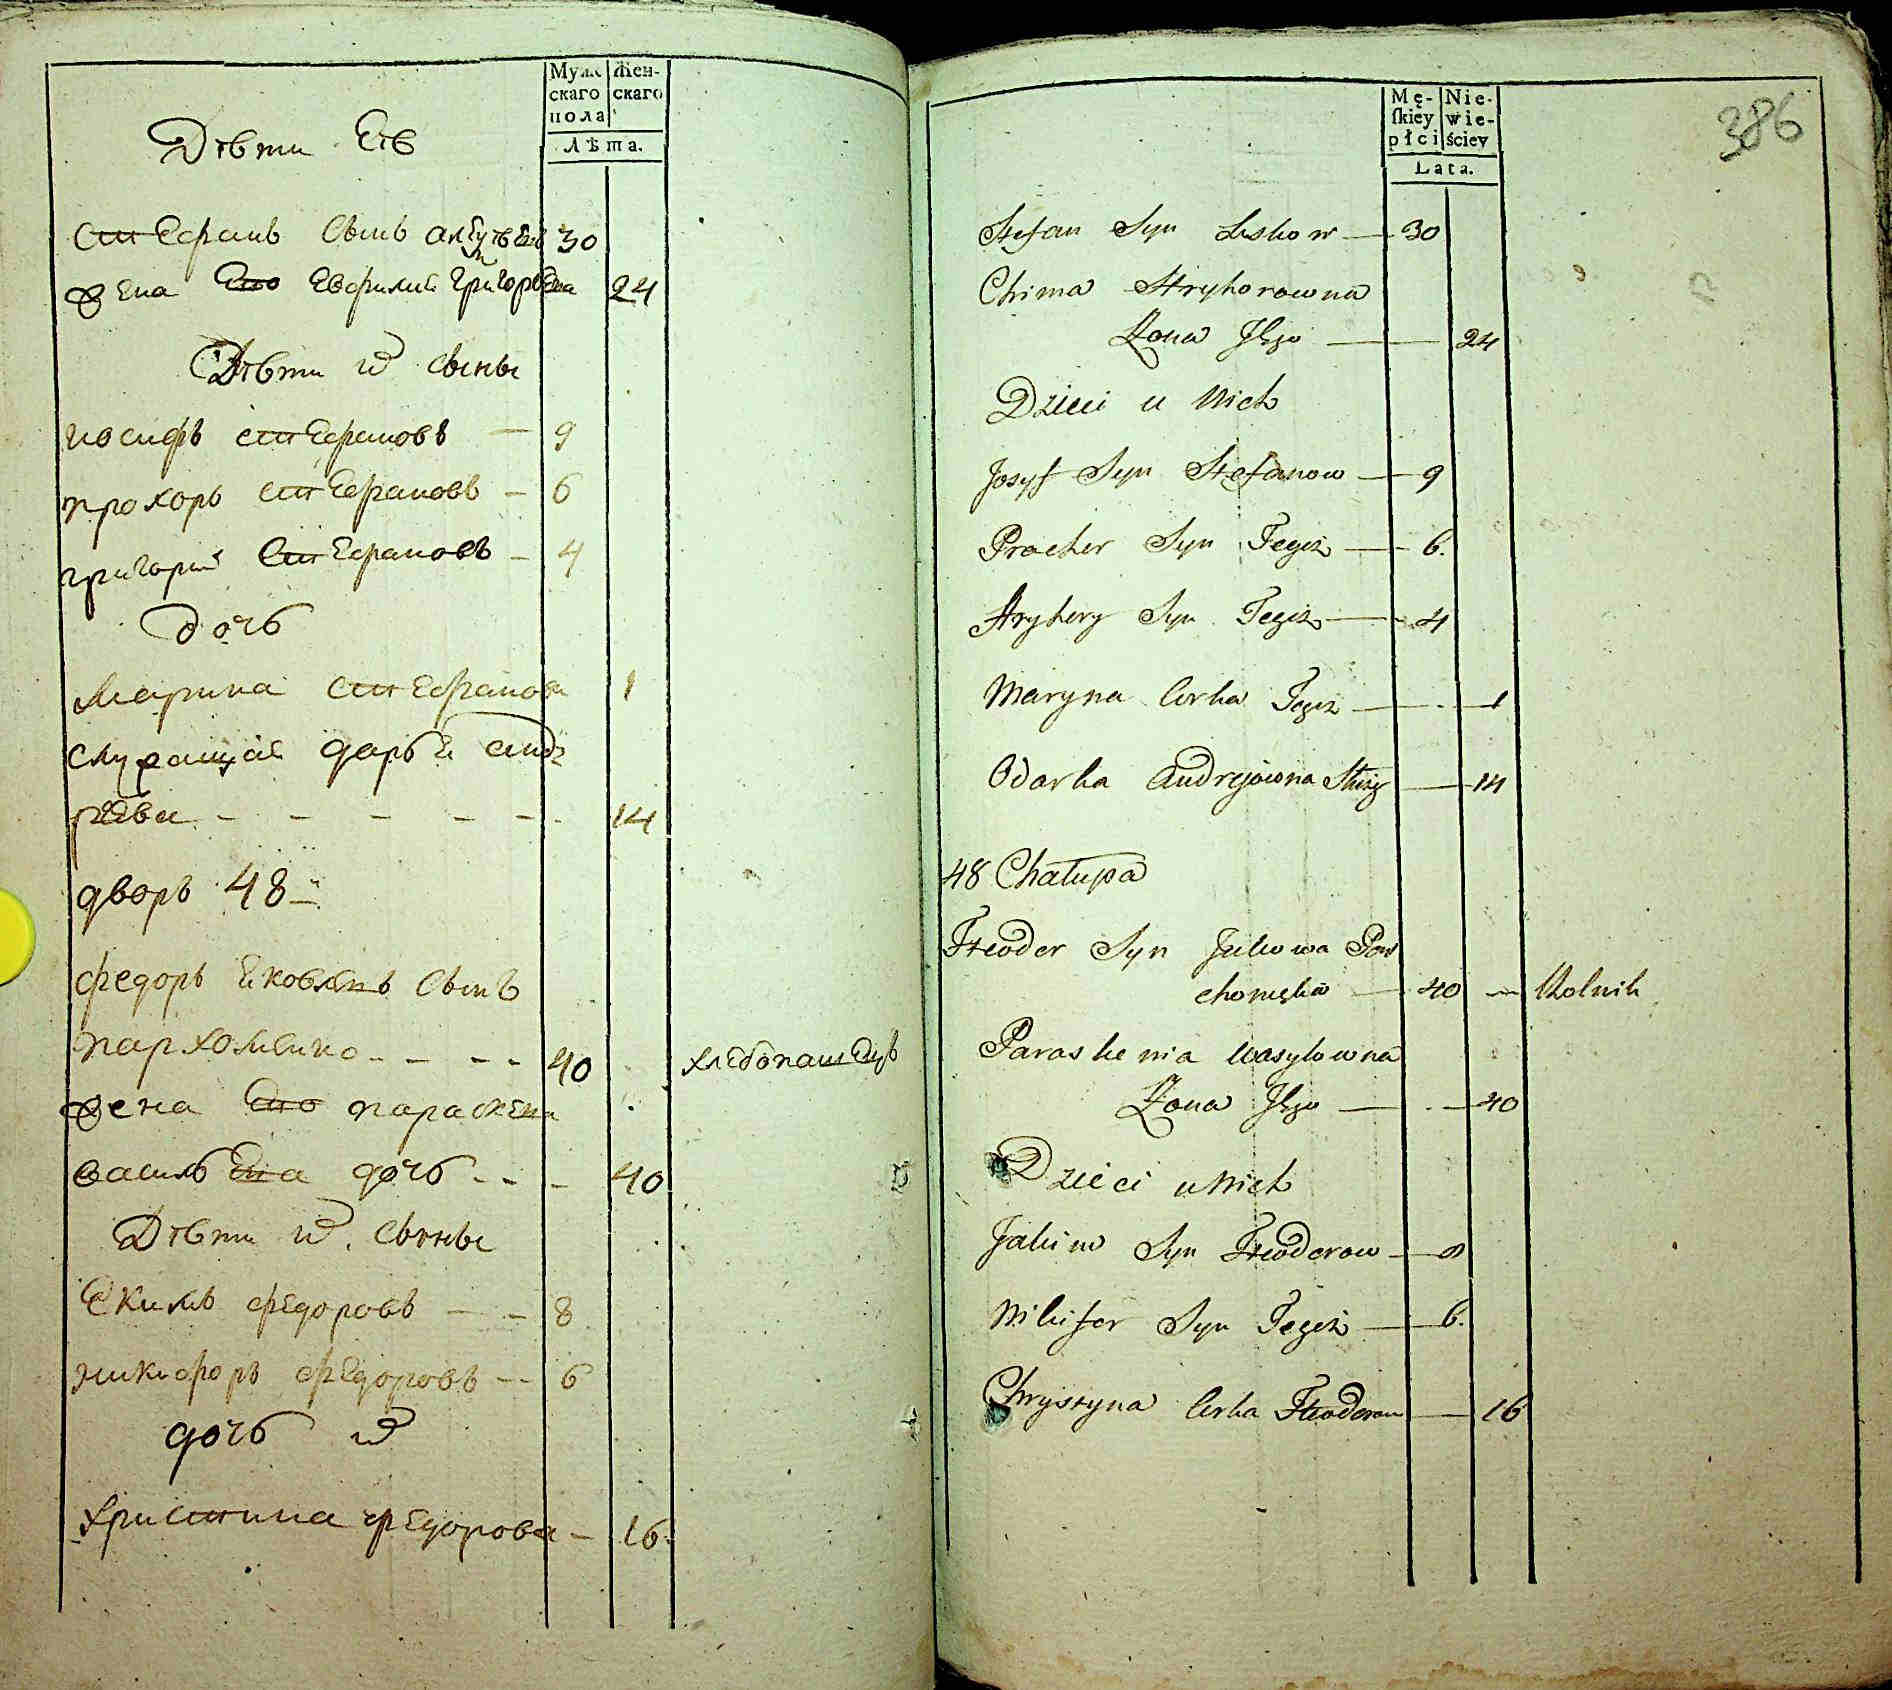 Мужскаго пола
Женскаго
Лѣта.
Дѣти Ев
Стефанъ Сынъ
30
жена Его Евфимия Григорьева
24
Дѣти ихъ сыны
иосифъ стефановъ — 9
прохоръ стефановъ — 6
григорий Стефановъ — 4
дочь
Марина стефанова 1
служащая дарья анд
рѣева - - - - - - 14
дворъ 48й
федоръ Яковлевъ Сынъ
пархоменко - - - - 40 хлебопашецъ
жена Его параскева
васильева дочь - - - 40
Дѣти ихъ сыны
Якимъ федоровъ — - 8
никифоръ федоровъ -- 6
дочь ихъ
христина федорова - 16
Mę-
ſkiey
płci
Nie-
wie-
ściey
Lata.
386
Stefan Syn Leskow — 30
Chima Hryhorowna
Zona Jego — 24
Dzieci u Nich
Josyf Syn Stefanow — 9
Procher Syn Tegoż — 6.
Hryhory Syn Tegoż — 4
Maryna Corka Tegoż — 1
Odarka Andrejowna Służ — 14
48 Chałupa
Fteodor Syn Jakowa Par
chomęka — 40 — Rolnik
Paraskewia Wasylowna
Zona Jego — 40
Dzieci u Nich
Jakim Syn Fteodorow — 8
Nikifor Syn Tegoż — 6.
Chrystyna Corka Fteodorow — 16